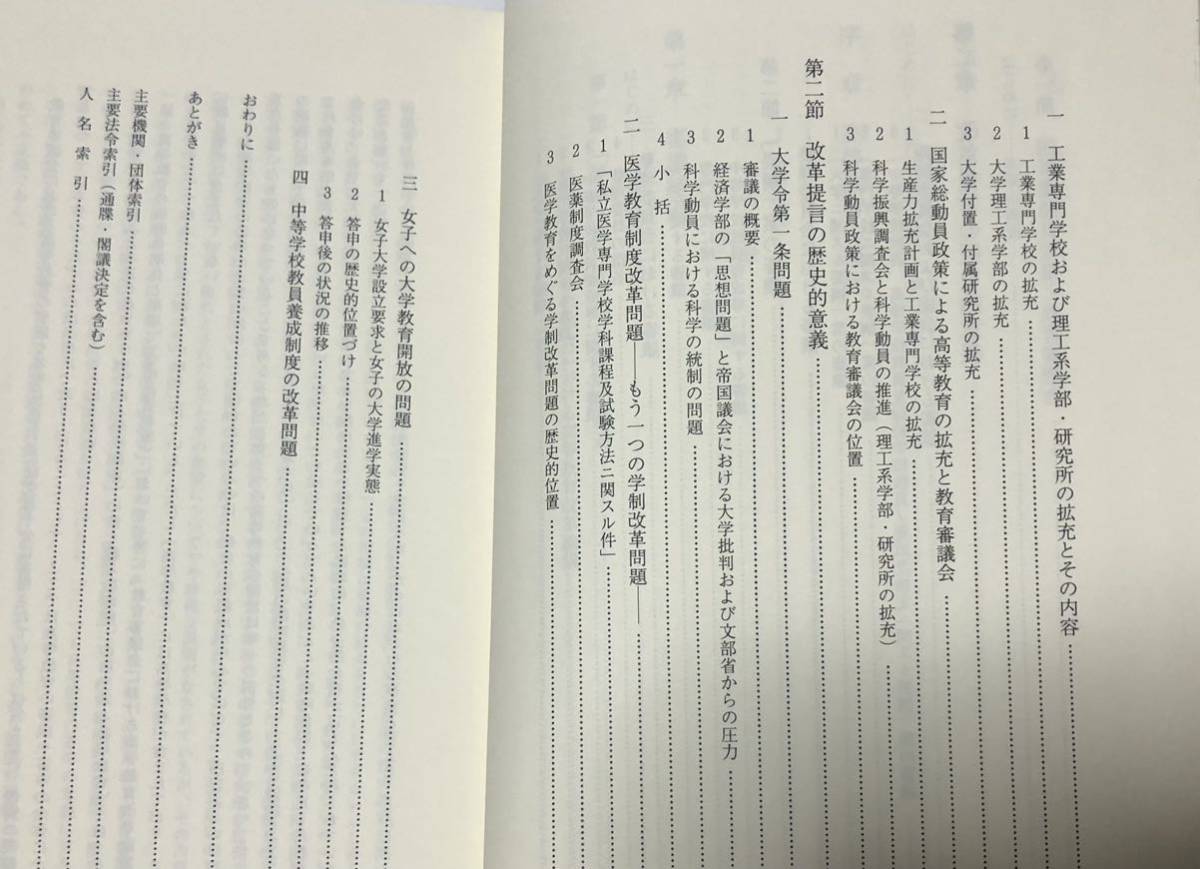 一 工業専門学校および理工系学部・研究所の拡充とその内容
1 工業専門学校の拡充
2 大学理工系学部の拡充
3 大学付置・付属研究所の拡充
二 国家総動員政策による高等教育の拡充と教育審議会
1 生産力拡充計画と工業専門学校の拡充
2 科学振興調査会と科学動員の推進（理工系学部・研究所の拡充）
3 科学動員政策における教育審議会の位置
第二節 改革提言の歴史的意義
一 大学令第一条問題
1 審議の概要
2 経済学部の「思想問題」と帝国議会における大学批判および文部省からの圧力
3 科学動員における科学の統制の問題
4 小括
二 医学教育制度改革問題――もう一つの学制改革問題――
1 「私立医学専門学校学科課程及試験方法ニ関スル件」
2 医薬制度調査会
3 医学教育をめぐる学制改革問題の歴史的位置
三 女子への大学教育開放の問題
1 女子大学設立要求と女子の大学進学実態
2 答申の歴史的位置づけ
3 答申後の状況の推移
四 中等学校教員養成制度の改革問題
おわりに
あとがき
主要機関・団体索引
主要法令索引（通牒・閣議決定を含む）
人名索引